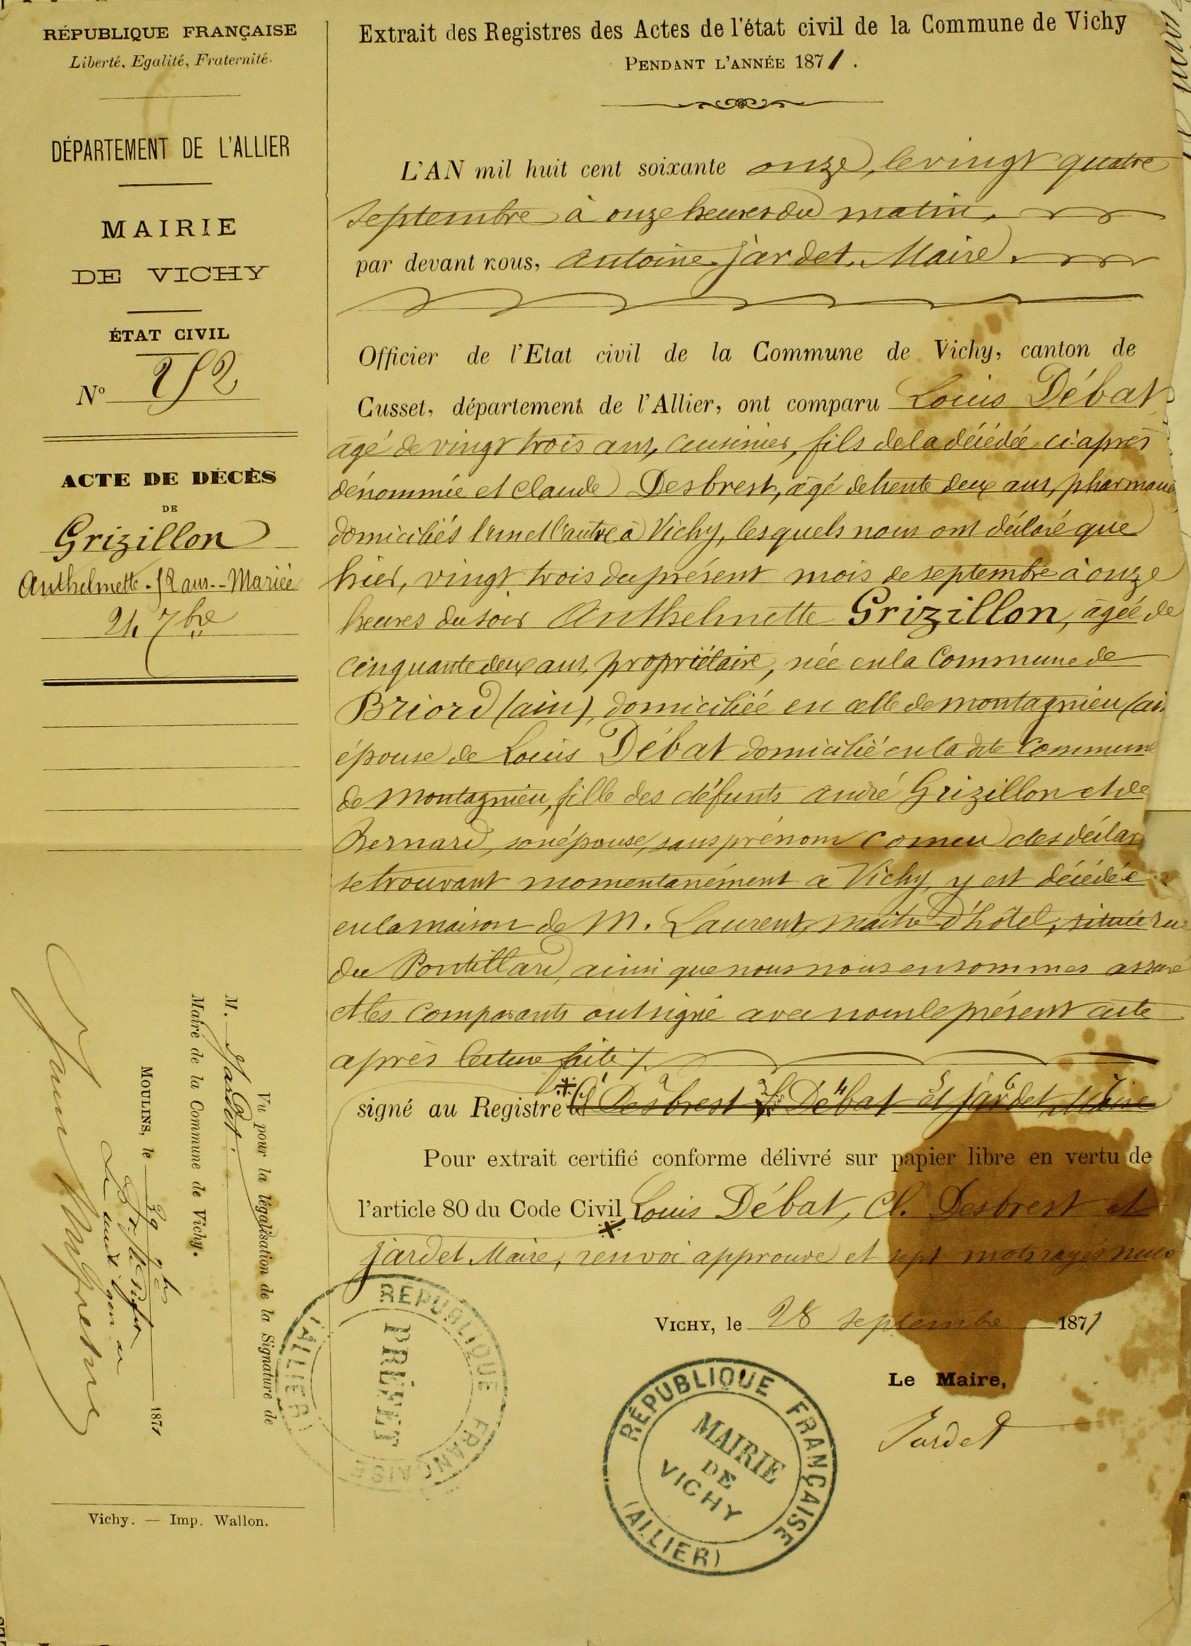 RÉPUBLIQUE FRANÇAISE
Liberté, Egalité, Fraternité.
DÉPARTEMENT DE L'ALLIER
MAIRIE
DE VICHY
ÉTAT CIVIL
N° 252
ACTE DE DÉCÈS
DE
Grizillon
Anthelmette - 52 ans - Mariée
24 7bre
Extrait des Registres des Actes de l'état civil de la Commune de Vichy
PENDANT L'ANNÉE 1871.
L'AN mil huit cent soixante onze, le vingt quatre
septembre à onze heures du matin,
par devant nous, Antoine Jardet, Maire.
Officier de l'Etat civil de la Commune de Vichy, canton de
Cusset, département de l'Allier, ont comparu Louis Débat
agé de vingt trois ans, cuisinier, fils de la décédée ci-après
dénommée et Claude Desbrest, âgé de trente deux ans, pharmacien
domiciliés l'un et l'autre à Vichy, lesquels nous ont déclaré que
hier, vingt trois du présent mois de septembre à onze
heures du soir Anthelmette Grizillon, âgée de
cinquante deux ans, propriétaire, née en la Commune de
Briord (ain), domiciliée en celle de Montagnieu (ain
épouse de Louis Débat domicilié en la dite Commune
de Montagnieu, fille des défunts André Grizillon et de
Bernard, son épouse, sans prénom connu des déclar
se trouvant momentanément à Vichy, y est décédée
en la maison de M. Laurent, maître d'hôtel, située rue
du Pontillard, ainsi que nous nous en sommes assuré
et les comparants ont signé avec nous le présent acte
après lecture faite ./.
signé au Registre Cl Desbrest Ls Débat et Jardet, Maire
Pour extrait certifié conforme délivré sur papier libre en vertu de
l'article 80 du Code Civil Louis Débat, Cl. Desbrest et
Jardet Maire, renvoi approuvé et sept mots rayés nuls
VICHY, le 28 septembre 1871
Le Maire,
Jardet
RÉPUBLIQUE FRANÇAISE
MAIRIE
DE
VICHY
(ALLIER)
RÉPUBLIQUE FRANÇAISE
PRÉFET
(ALLIER)
Vu pour la légalisation de la Signature de
M. Jardet.
Maire de la Commune de Vichy.
MOULINS, le 29 7bre 1871
Vichy. — Imp. Wallon.